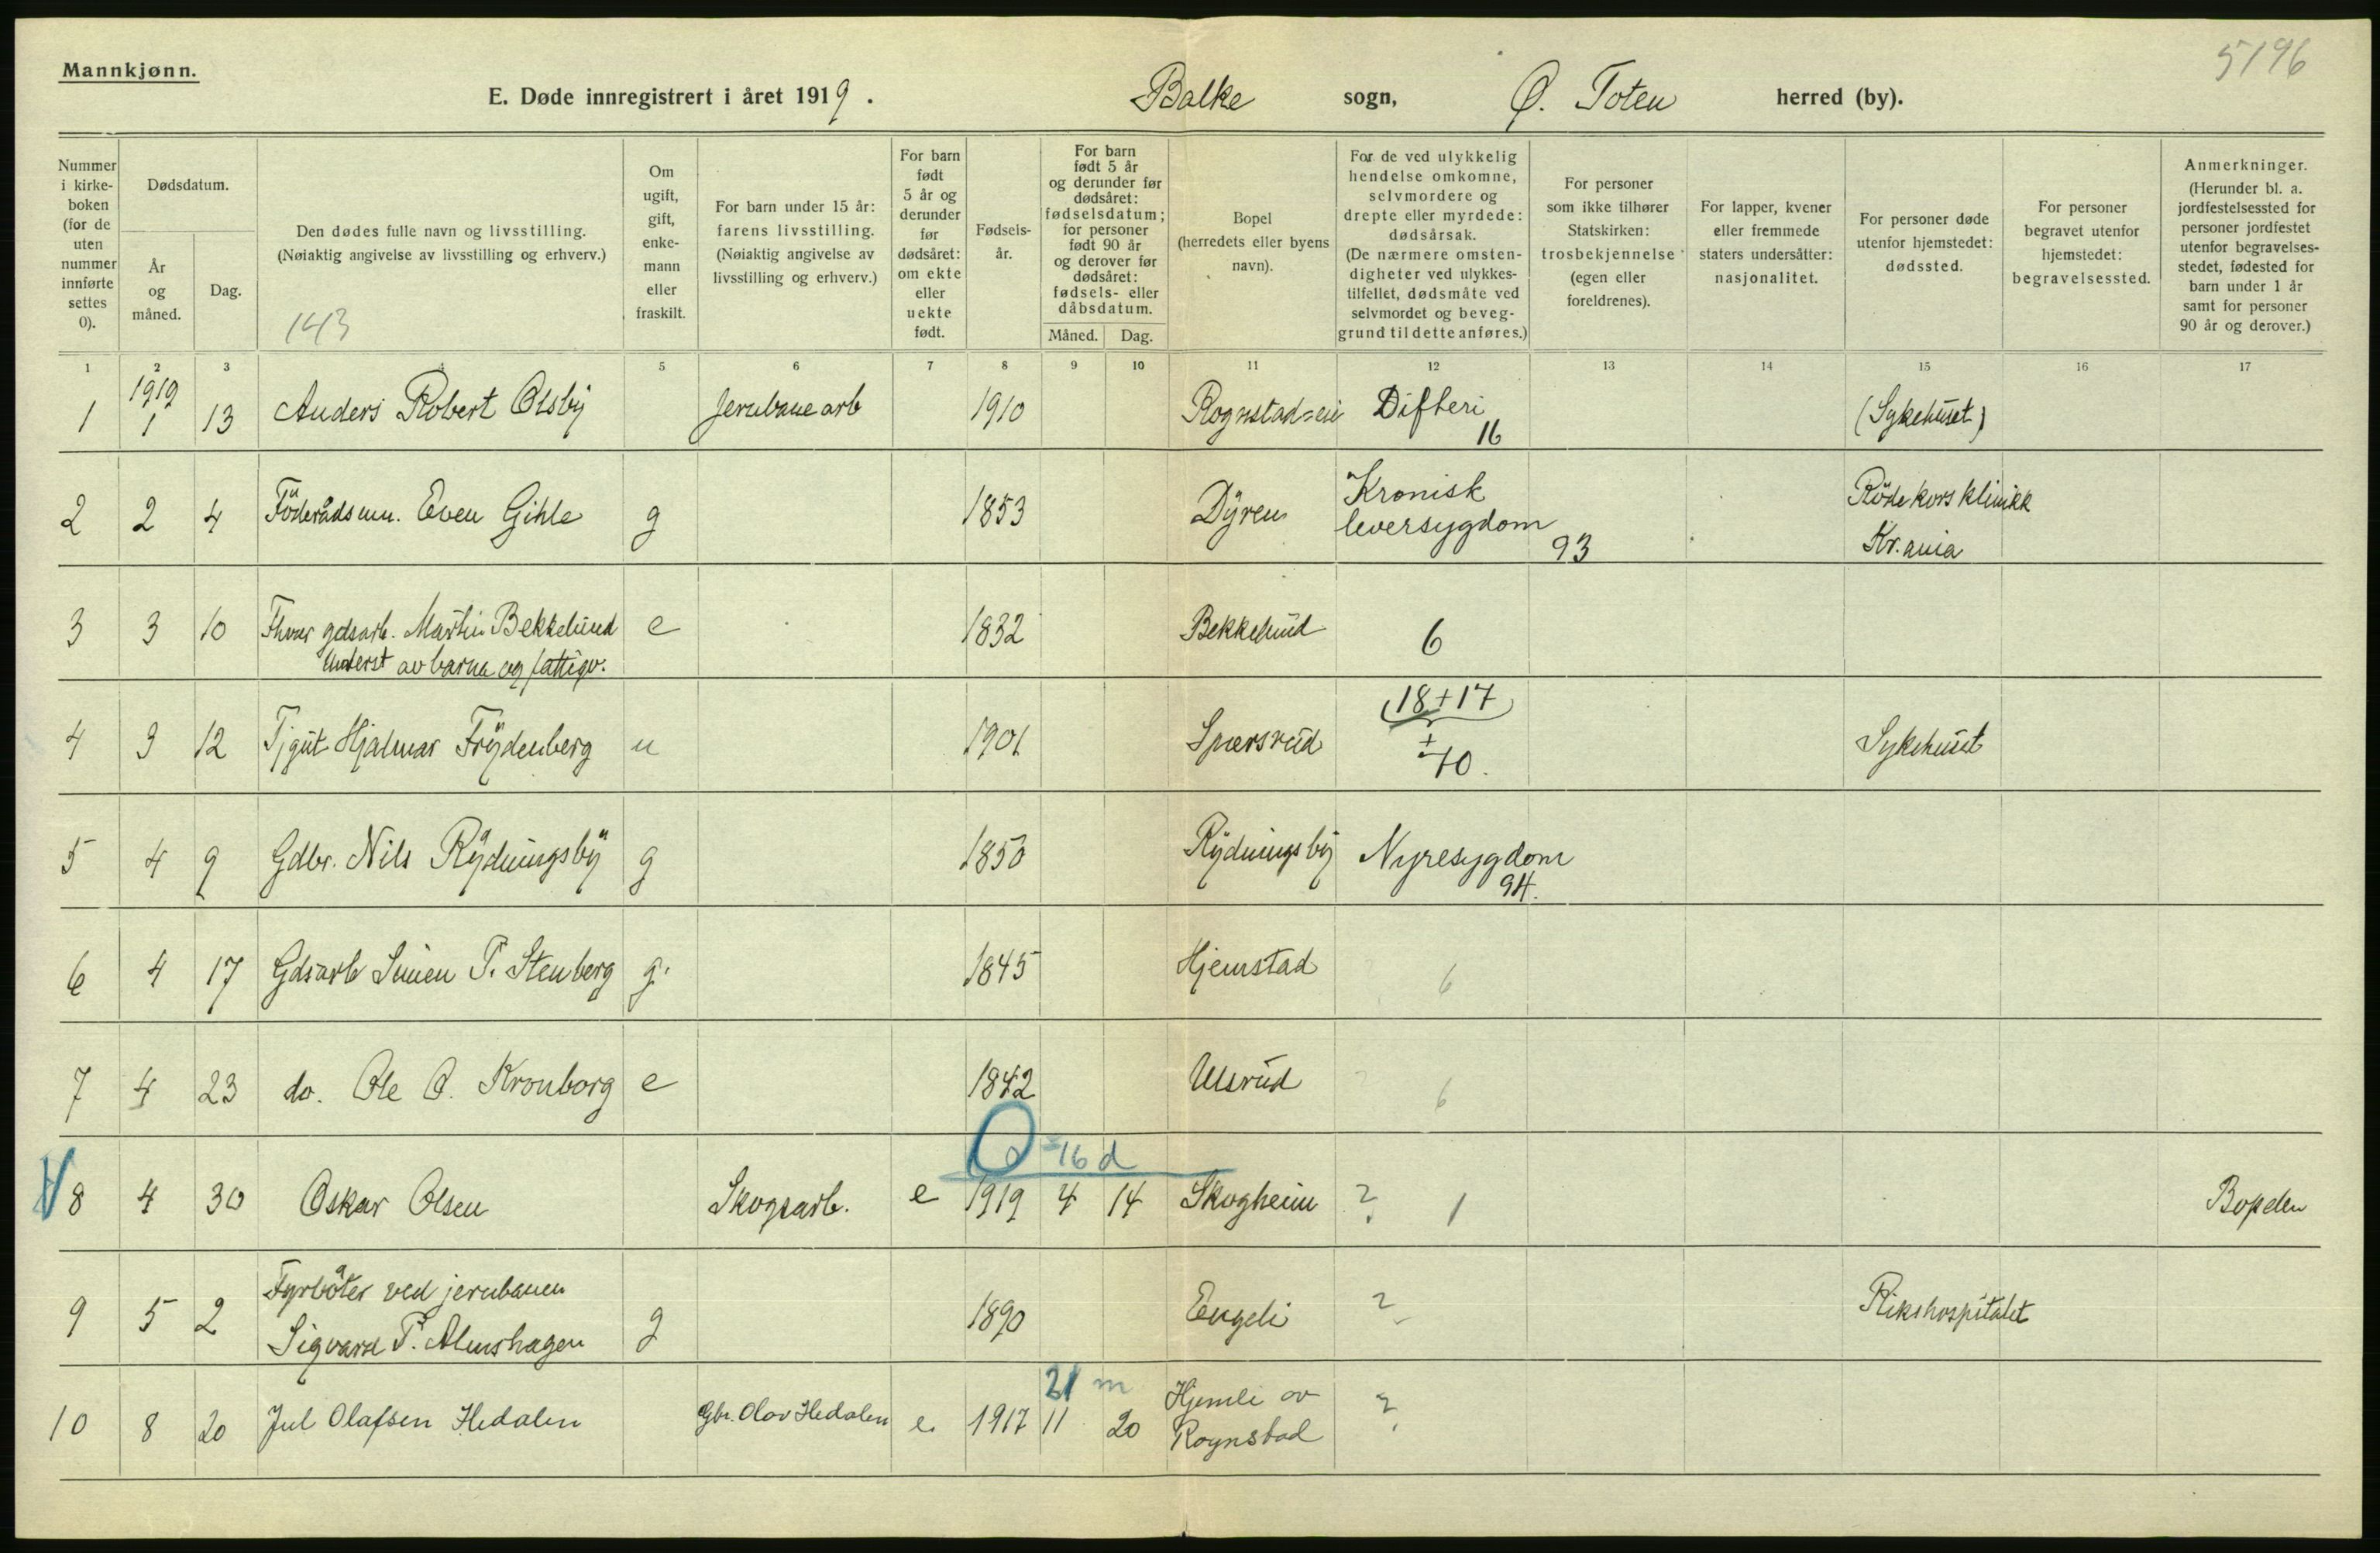 5196
Mannkjønn.
E. Døde innregistrert i året 1919. Balke sogn, Ø. Toten herred (by).
Nummer i kirkeboken (for de uten nummer innførte settes 0).
Dødsdatum.
År og måned.
Dag.
Den dødes fulle navn og livsstilling.
(Nøiaktig angivelse av livsstilling og erhverv.)
143
Om ugift, gift, enkemann eller fraskilt.
For barn under 15 år: farens livsstilling.
(Nøiaktig angivelse av livsstilling og erhverv.)
For barn født 5 år og derunder før dødsåret: om ekte eller uekte født.
Fødselsår.
For barn født 5 år og derunder før dødsåret: fødselsdatum; for personer født 90 år og derover før dødsåret: fødsels- eller dåbsdatum.
Måned. Dag.
Bopel (herredets eller byens navn).
For de ved ulykkelig hendelse omkomne, selvmordere og drepte eller myrdede: dødsårsak.
(De nærmere omstendigheter ved ulykkestilfellet, dødsmåte ved selvmordet og beveggrund til dette anføres.)
For personer som ikke tilhører Statskirken: trosbekjennelse (egen eller foreldrenes).
For lapper, kvener eller fremmede staters undersåtter: nasjonalitet.
For personer døde utenfor hjemstedet: dødssted.
For personer begravet utenfor hjemstedet: begravelsessted.
Anmerkninger.
(Herunder bl. a. jordfestelsessted for personer jordfestet utenfor begravelsesstedet, fødested for barn under 1 år samt for personer 90 år og derover.)
1 2 3 4 5 6 7 8 9 10 11 12 13 14 15 16 17
1919
1 1 13 Anders Robert Olsby Jernbanearb 1910 Rognstad=eie Difteri (Sykehuset)
16
2 2 4 Föderådsmn. Even Gihle g 1853 Dyren Kronisk leversygdom 93 Rödekors klinikk Kr.ania
3 3 10 Fhver gdsarb. Martin Bekkelund e 1832 Bekkelund 6
Underst av barna og fattigv.
18+17
4 3 12 Tjgut Hjalmar Frydenberg u 1901 Spærsrud ± 70. Sykehuset
5 4 9 Gdbr. Nils Rydningsby g 1850 Rydningsby Nyresygdom
94.
6 4 17 Gdsarb Simen P. Stenberg g. 1845 Hjemstad 6
7 4 23 do. Ole O. Kronborg e 1842 Ulsrud 6
0 - 16 d
8 4 30 Oskar Olsen Skogsarb. e 1919 4 14 Skogheim ? 1 Bopelen
Fyrböter ved jernbanen
9 5 2 Sigvard P. Almshagen g 1890 Engeli ? Rikshospitalet
21 m
10 8 20 Jul Olafsen Hedalen Gbr. Olav Hedalen e. 1917 11 20 Hjemli av Rognstad ?